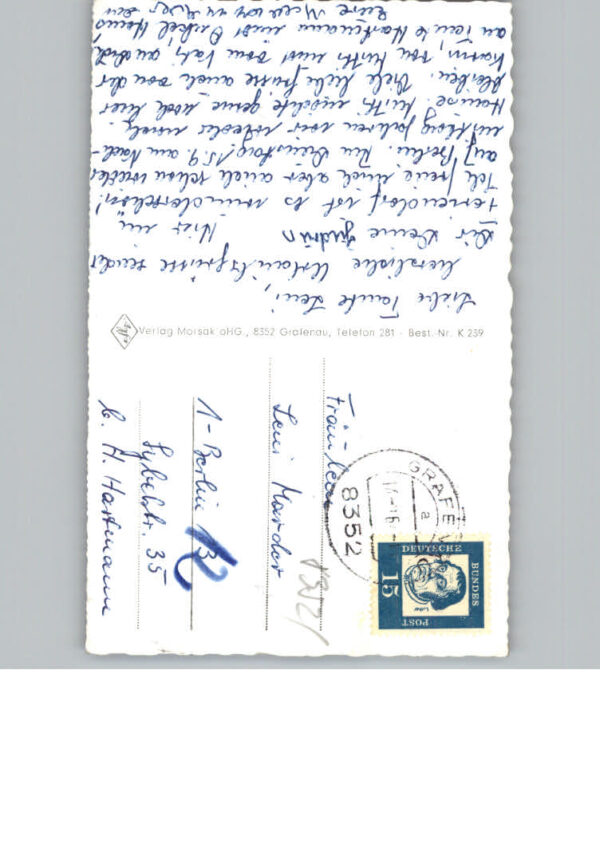 Liebe Tante Leni,
herzliche Urlaubsgrüsse sendet
Dir Deine Gudrun Hier im
Feriendorf ist es wunderschön!
Ich freue mich aber auch schon wieder
auf Berlin. Am Dienstag, 15.9. am Nach-
mittag fahren wir wieder nach
Hause. Mutti möchte gerne noch hier
bleiben. Viele liebe Grüsse auch von der
Karin, von Mutti und vom Vati, auch
an Tante Hartmann und Onkel Heinz,
Verlag Morsak oHG., 8352 Grafenau, Telefon 281 - Best.-Nr. K 239
Agfa
Fräulein
Leni Mander
1-Berlin 12
Sybelstr. 35
b. H. Hartmann
GRAFENAU
8352
a
DEUTSCHE
BUNDES
POST
15